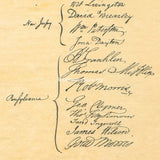 Wil Livingston
New Jersey
David Brearley
Wm Paterson
Jona Dayton
B Franklin
Thomas Mifflin
Robt Morris
Geo Clymer
Thos FitzSimons
Jared Ingersoll
James Wilson
Gouv Morris